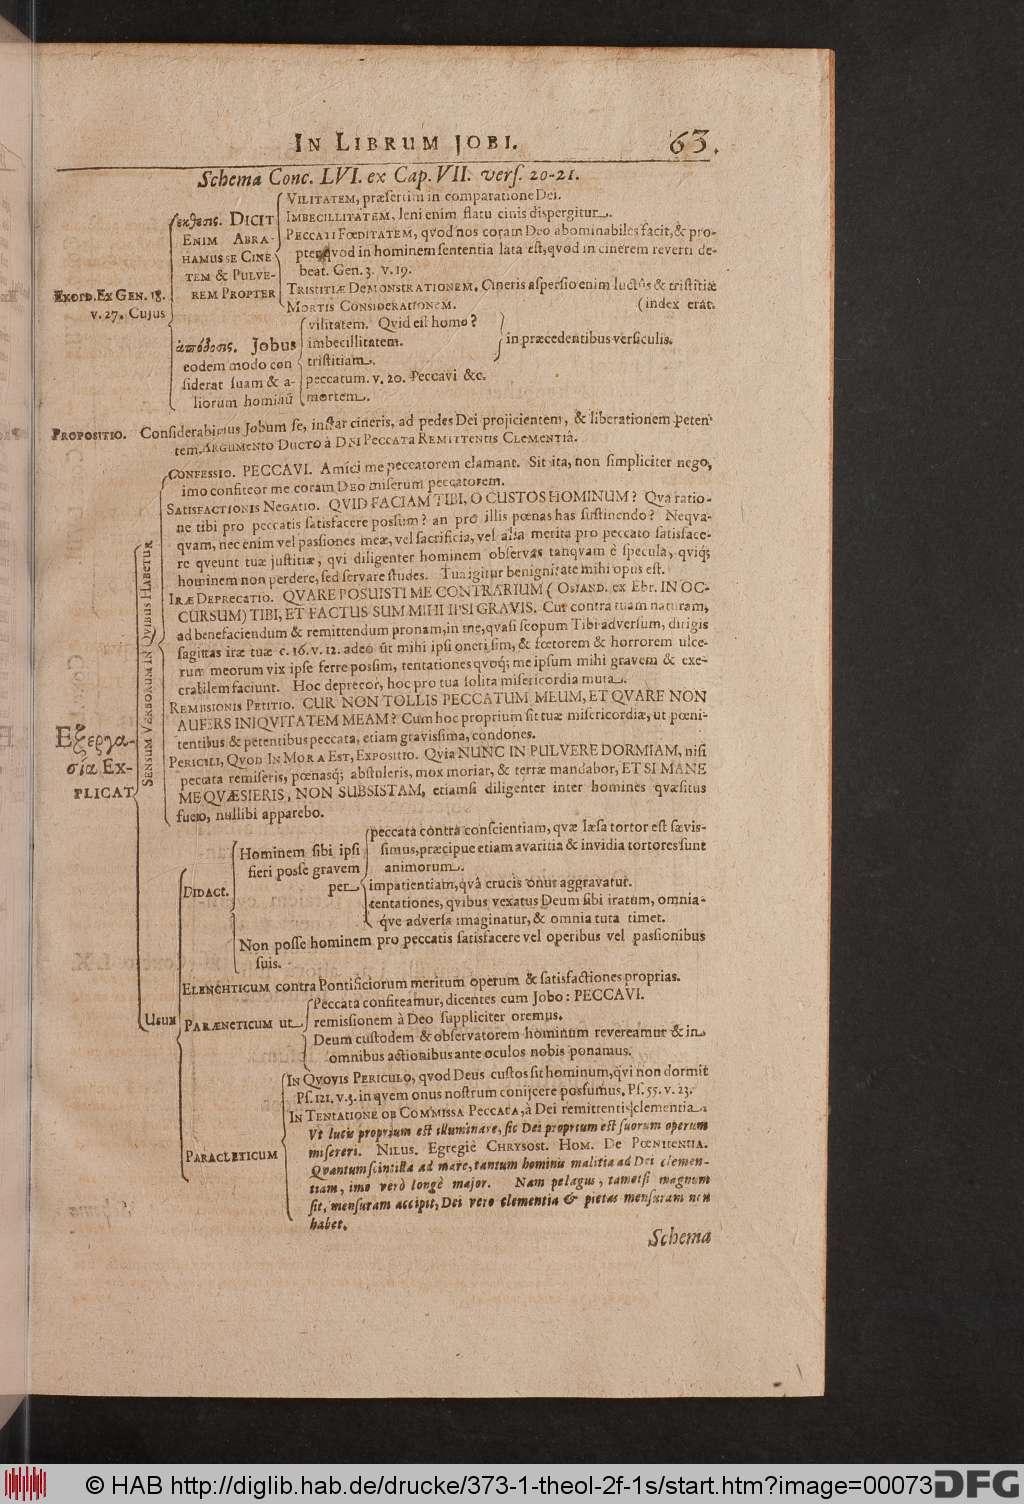 IN LIBRUM JOBI. 63.
Schema Conc. LVI. ex Cap. VII. vers. 20-21.
EXORD. EX GEN. 18.
v. 27. Cujus
ἔκθεσις. DICIT
ENIM ABRA-
HAMUS SE CINE
TEM & PULVE-
REM PROPTER
VILITATEM, præsertim in comparatione Dei.
IMBECILLITATEM, leni enim flatu cinis dispergitur.
PECCATI FŒDITATEM, qvod nos coram Deo abominabiles facit, & pro-
pter qvod in hominem sententia lata est, qvod in cinerem reverti de-
beat. Gen. 3. v. 19.
TRISTITIÆ DEMONSTRATIONEM. Cineris aspersio enim luctûs & tristitiæ
MORTIS CONSIDERATIONEM. (index erat.
ἀπόδοσις. Jobus
eodem modo con
siderat suam & a-
liorum hominũ
vilitatem. Qvid est homo?
imbecillitatem.
tristitiam.
peccatum. v. 20. Peccavi &c.
mortem.
in præcedentibus versiculis.
PROPOSITIO. Considerabimus Jobum se, instar cineris, ad pedes Dei projicientem, & liberationem peten-
tem, ARGUMENTO DUCTO à DEI PECCATA REMITTENTIS CLEMENTIâ.
Εξεργα-
σία EX-
PLICAT
SENSUM VERBORUM IN QVIBUS HABETUR
CONFESSIO. PECCAVI. Amici me peccatorem clamant. Sit ita, non simpliciter nego,
imo confiteor me coram DEO miserum peccatorem.
SATISFACTIONIS NEGATIO. QVID FACIAM TIBI, O CUSTOS HOMINUM? Qva ratio-
ne tibi pro peccatis satisfacere possum? an pro illis pœnas has sustinendo? Neqva-
qvam, nec enim vel passiones meæ, vel sacrificia, vel alia merita pro peccato satisface-
re qveunt tuæ justitiæ, qvi diligenter hominem observas tanqvam è specula, qviq;
hominem non perdere, sed servare studes. Tua igitur benignitate mihi opus est.
IRÆ DEPRECATIO. QVARE POSUISTI ME CONTRARIUM (OSIAND. ex Ebr. IN OC-
CURSUM) TIBI, ET FACTUS SUM MIHI IPSI GRAVIS. Cur contra tuam naturam,
ad benefaciendum & remittendum pronam, in me, qvasi scopum Tibi adversum, dirigis
sagittas iræ tuæ c. 16. v. 12. adeò ût mihi ipsi oneri sim, & fœtorem & horrorem ulce-
rum meorum vix ipse ferre possim, tentationes qvoq; me ipsum mihi gravem & exe-
crabilem faciunt. Hoc deprecor, hoc pro tua solita misericordia muta.
REMISSIONIS PETITIO. CUR NON TOLLIS PECCATUM MEUM, ET QVARE NON
AUFERS INIQVITATEM MEAM? Cum hoc proprium sit tuæ misericordiæ, ut pœni-
tentibus & petentibus peccata, etiam gravissima, condones.
PERICULI, QVOD IN MORA EST, EXPOSITIO. Qvia NUNC IN PULVERE DORMIAM, nisi
peccata remiseris, pœnasq; abstuleris, mox moriar, & terræ mandabor, ET SI MANE
ME QVÆSIERIS, NON SUBSISTAM, etiamsi diligenter inter homines qvæsitus
fuero, nullibi apparebo.
USUM
DIDACT.
Hominem sibi ipsi
fieri posse gravem
per
peccata contra conscientiam, qvæ læsa tortor est sævis-
simus, præcipue etiam avaritia & invidia tortores sunt
animorum.
impatientiam, qvâ crucis onus aggravatur.
tentationes, qvibus vexatus Deum sibi iratum, omnia-
qve adversa imaginatur, & omnia tuta timet.
Non posse hominem pro peccatis satisfacere vel operibus vel passionibus
suis.
ELENCHTICUM contra Pontificiorum meritum operum & satisfactiones proprias.
PARÆNETICUM ut
Peccata confiteamur, dicentes cum Jobo: PECCAVI.
remissionem à Deo suppliciter oremus.
Deum custodem & observatorem hominum revereamur & in
omnibus actionibus ante oculos nobis ponamus.
PARACLETICUM
IN QVOVIS PERICULO, qvod Deus custos sit hominum, qvi non dormit
Ps. 121. v. 3. in qvem onus nostrum conijcere possumus, Ps. 55. v. 23.
IN TENTATIONE OB COMMISSA PECCATA, à Dei remittentis clementia.
Vt lucis proprium est illuminare, sic Dei proprium est suorum operum
misereri. NILUS. Egregiè CHRYSOST. HOM. DE PŒNITENTIA.
Qvantum scintilla ad mare, tantum hominis malitia ad Dei clemen-
tiam, imo verò longè major. Nam pelagus, tametsi magnum
sit, mensuram accipit, Dei vero clementia & pietas mensuram non
habet.
Schema
© HAB http://diglib.hab.de/drucke/373-1-theol-2f-1s/start.htm?image=00073
DFG